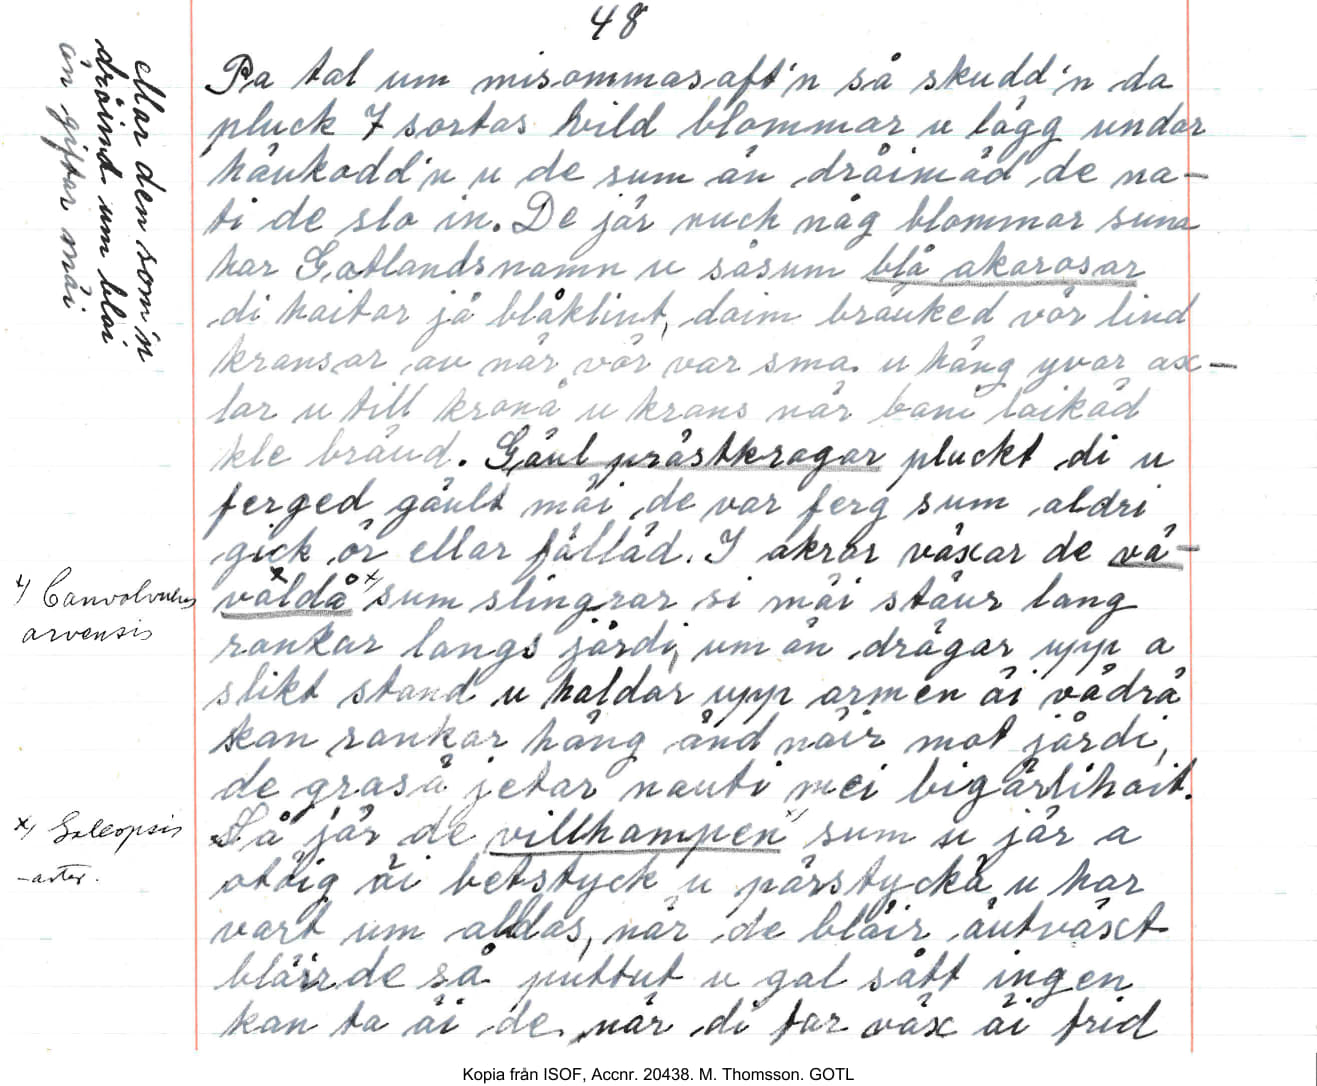 48
Pa tal um misommasaft'n så skudd'n da
pluck 7 sortas hild blommar u lägg undar
häukodd'n u de sum än dräimäd de na-
ti de slo in. De jär nuck näg blommar suna
har Gotlandsnamn u såsum blå akarosar
di haitar jå blåklint, daim brauked vör lind
kransar av när vör var sma u häng yvar ax-
lar u till kronå u krans när bani laikäd
kle bräud. Gäul prästkragar pluckt di u
ferged gäult mäi de var ferg sum aldri
gick ör ellar fälläd. I akrar växar de vä-
väldå x) sum slingrar si mäi stäur lang
rankar langs järdi, um än drägar upp a
slikt stand u haldar upp armen äi vädrä
kan rankar häng änd näir mot järdi,
de graså jetar nauti mei bigärlihait.
Så jär de villhampen x) sum u jär a
otäig äi betstyck u pärstyckä u har
vart um aldas, när de bläir äutväxt
blärrde så puttut u gal sått ingen
kan ta äi de, när di far väx äi frid
ellar den som'n
dröimd um blai
än giftar mäi
x) Canvolvulus
arvensis
x) Galeopsis
-arter.
Kopia från ISOF, Accnr. 20438. M. Thomsson. GOTL